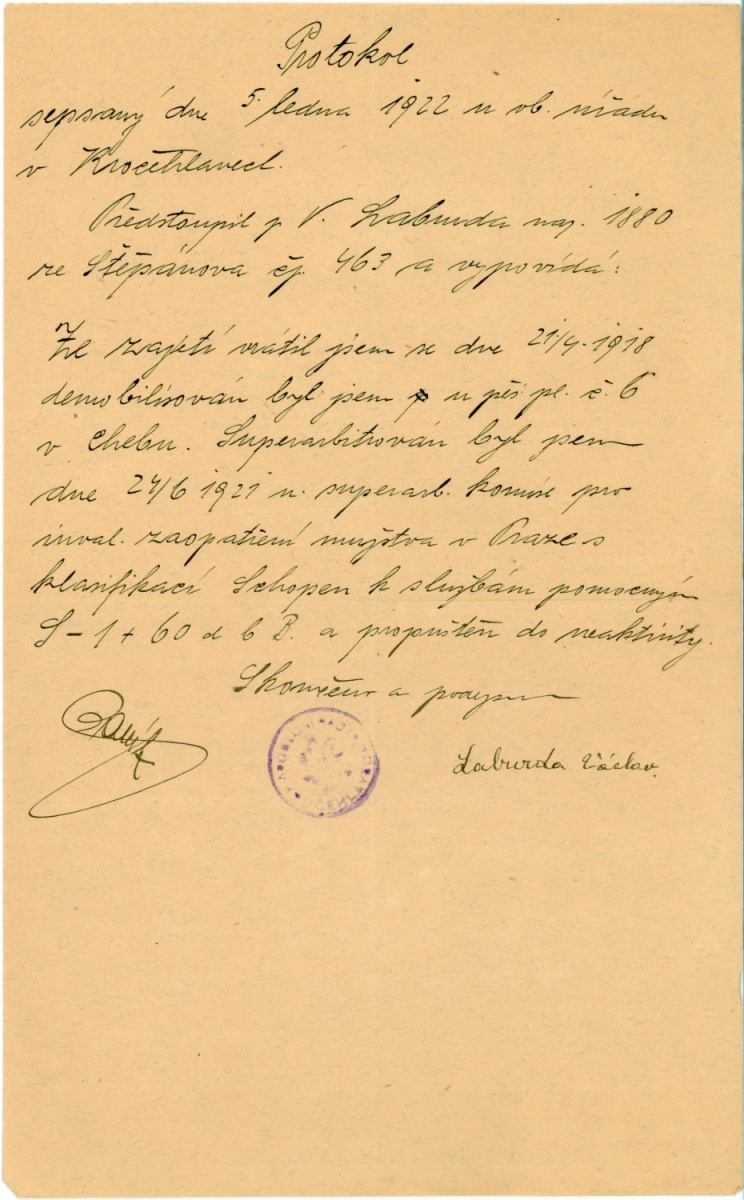 Protokol
sepsaný dne 5. ledna 1922 u ob. úřadu
v Kročehlavech.
Předstoupil p V. Laburda naj. 1880
ze Štěpánova čj. 463 a vypovídá:
Ze zajetí vrátil jsem se dne 21/4.-1918
demobilisován byl jsem u pěš pl. č. 6
v Chebu. Superarbitrován byl jsem
dne 24/6 1921 u. superarb. komise pro
inval. zaopatření mužstva v Praze s
klasifikací Schopen k službám pomocným
S-1+60 d 6 B. a propuštěn do neaktivity.
Skončeno a podepsáno
Laburda Václav.